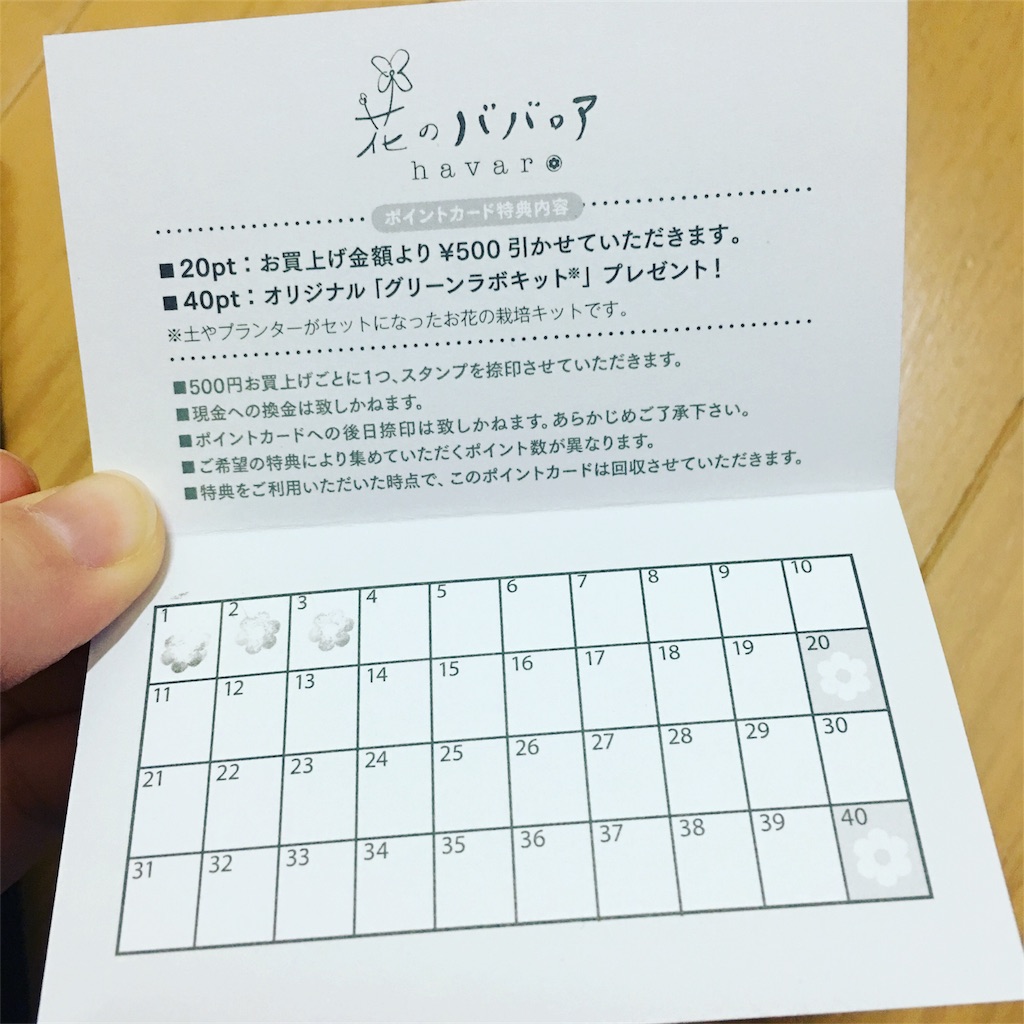 花のババロア
havaro
ポイントカード特典内容
■20pt：お買上げ金額より¥500引かせていただきます。
■40pt：オリジナル「グリーンラボキット※」プレゼント！
※土やプランターがセットになったお花の栽培キットです。
■500円お買上げごとに1つ、スタンプを捺印させていただきます。
■現金への換金は致しかねます。
■ポイントカードへの後日捺印は致しかねます。あらかじめご了承下さい。
■ご希望の特典により集めていただくポイント数が異なります。
■特典をご利用いただいた時点で、このポイントカードは回収させていただきます。
1 2 3 4 5 6 7 8 9 10
11 12 13 14 15 16 17 18 19 20
21 22 23 24 25 26 27 28 29 30
31 32 33 34 35 36 37 38 39 40